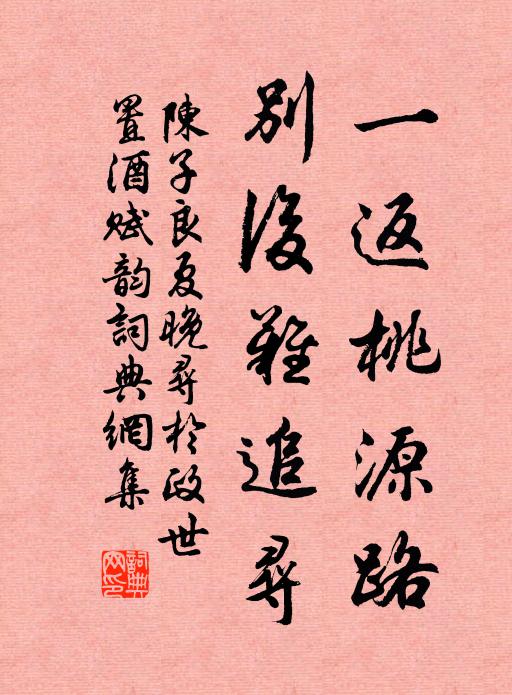 一返桃源路
別後難追尋
陳子良夏晚尋於政世
置酒賦韵詞典網集
詞典網印